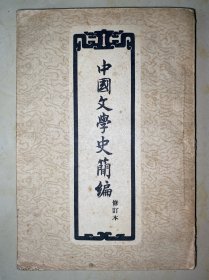 中國文學史簡編
修訂本